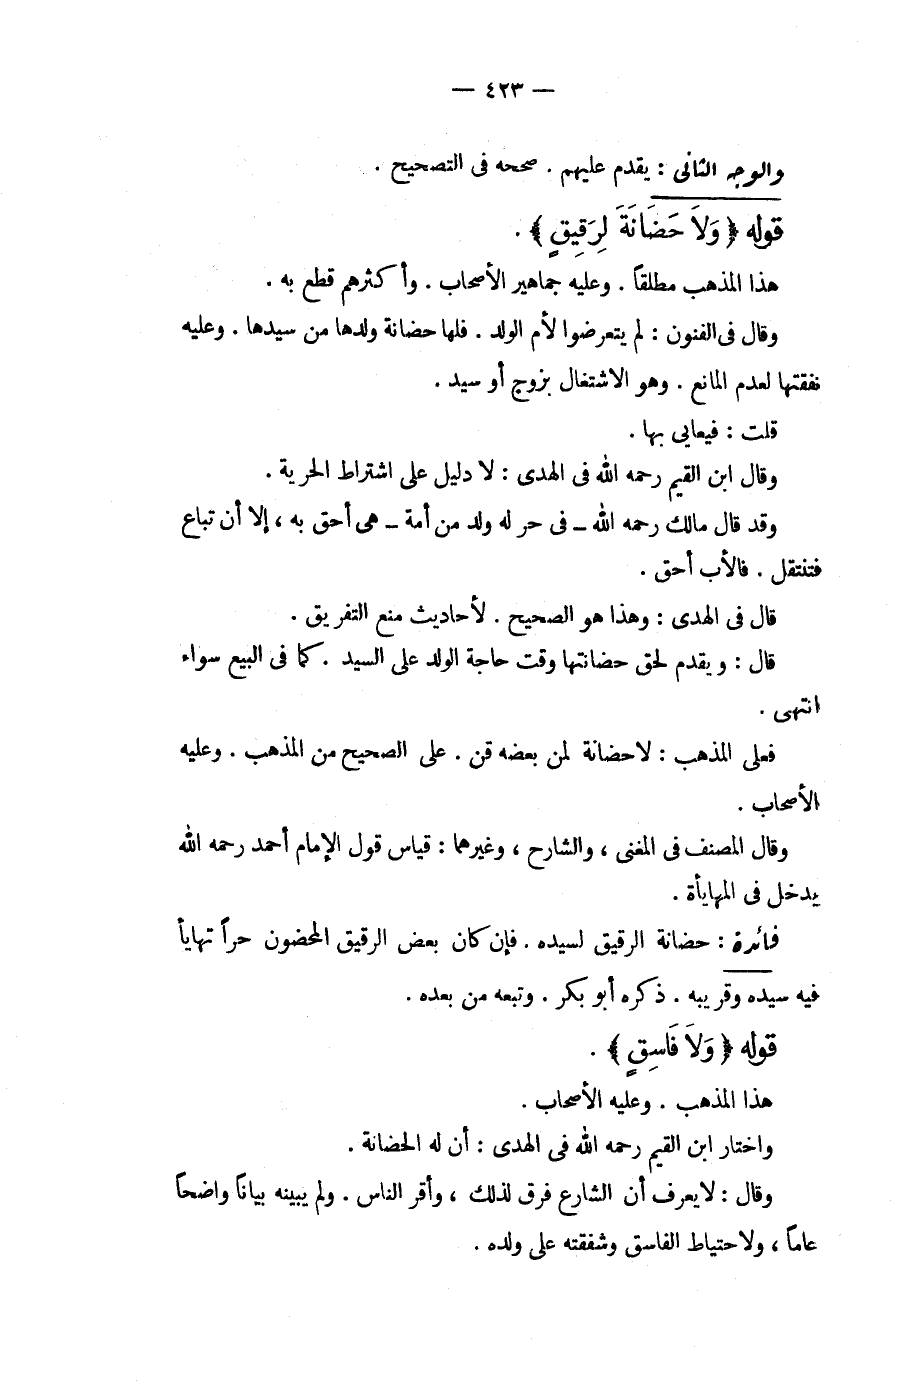 — ٤٢٣ —
والوجه الثانى : يقدم عليهم . صححه فى التصحيح .
قوله ﴿ وَلاَ حَضَانَةَ لِرَقِيقٍ ﴾ .
هذا المذهب مطلقاً . وعليه جماهير الأصحاب . وأكثرهم قطع به .
وقال فى الفنون : لم يتعرضوا لأم الولد . فلها حضانة ولدها من سيدها . وعليه
نفقتها لعدم المانع . وهو الاشتغال بزوج أو سيد .
قلت : فيعايى بها .
وقال ابن القيم رحمه الله فى الهدى : لا دليل على اشتراط الحرية .
وقد قال مالك رحمه الله ــ فى حر له ولد من أمة ــ هى أحق به ، إلا أن تباع
فتنتقل . فالأب أحق .
قال فى الهدى : وهذا هو الصحيح . لأحاديث منع التفريق .
قال : ويقدم لحق حضانتها وقت حاجة الولد على السيد . كما فى البيع سواء
انتهى .
فعلى المذهب : لاحضانة لمن بعضه قن . على الصحيح من المذهب . وعليه
الأصحاب .
وقال المصنف فى المغنى ، والشارح ، وغيرهما : قياس قول الإمام أحمد رحمه الله
يدخل فى المهايأة .
فائدة : حضانة الرقيق لسيده . فإن كان بعض الرقيق المحضون حراً تهايأ
فيه سيده وقريبه . ذكره أبو بكر . وتبعه من بعده .
قوله ﴿ وَلاَ فَاسِقٍ ﴾ .
هذا المذهب . وعليه الأصحاب .
واختار ابن القيم رحمه الله فى الهدى : أن له الحضانة .
وقال : لايعرف أن الشارع فرق لذلك ، وأقر الناس . ولم يبينه بياناً واضحاً
عاماً ، ولاحتياط الفاسق وشفقته على ولده .